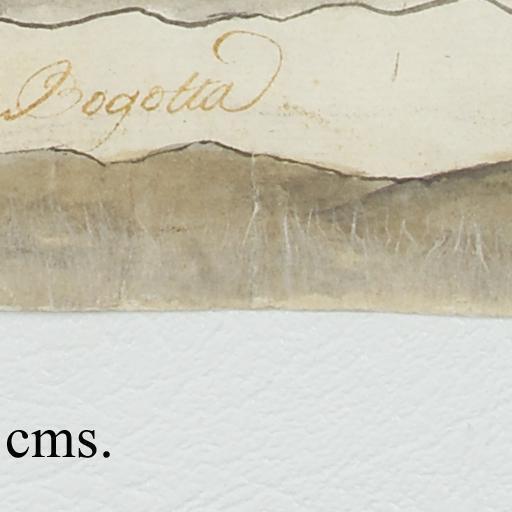 Bogotta
cms.